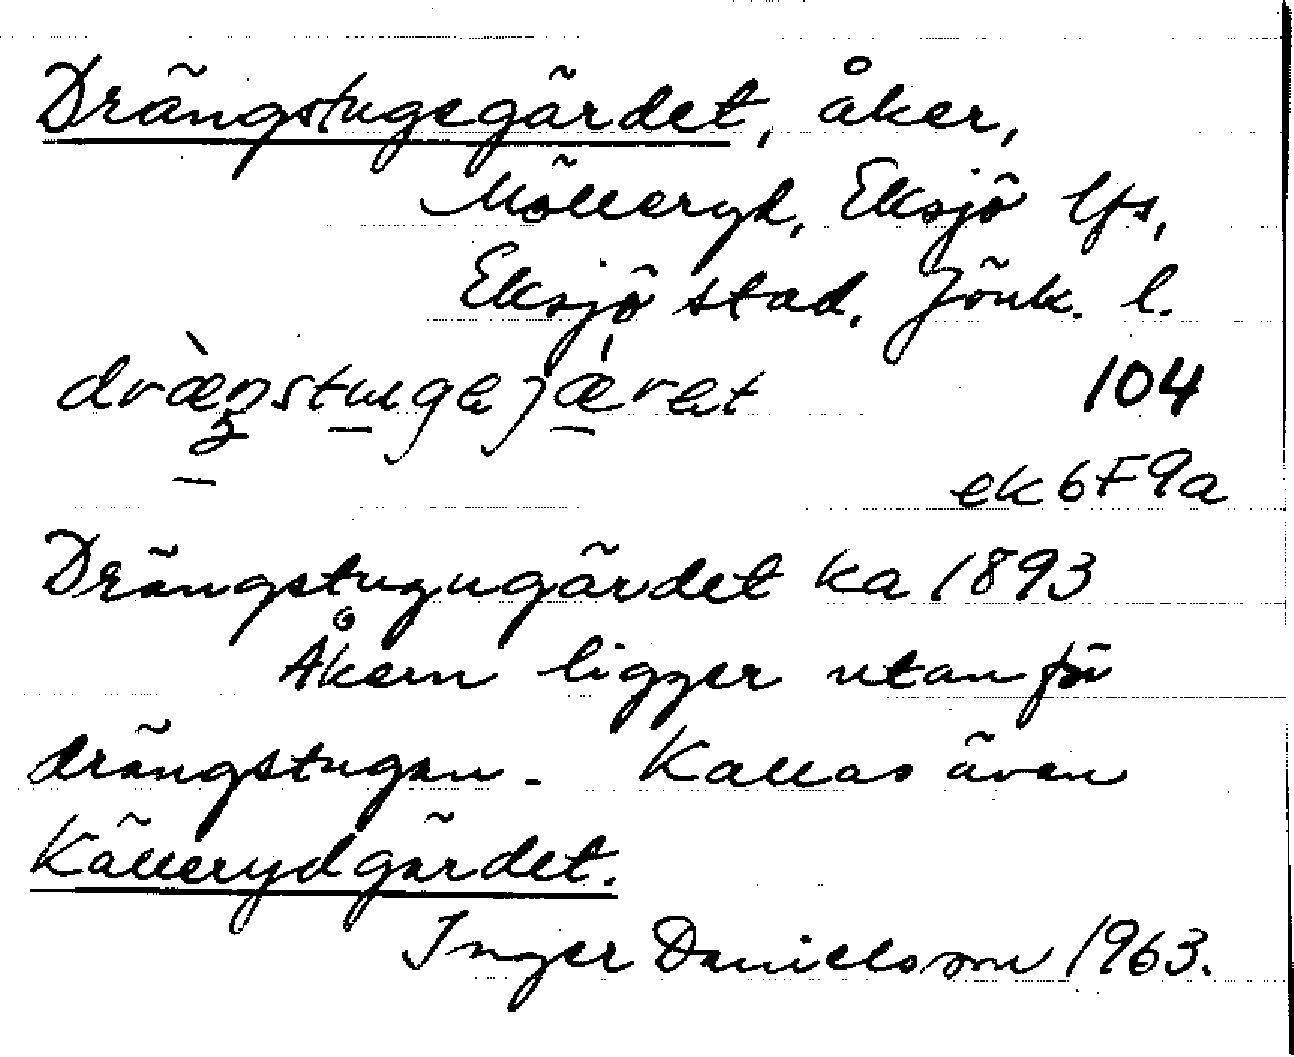 Drängstugegärdet, åker,
Mölleryd, Eksjö lfs,
Eksjö stad, Jönk. l.
dræ̀ŋstugejǽret 104
ek6F9a
Drängstugugärdet ka 1893
Åkern ligger utanför
drängstugan. Kallas även
Källerydgärdet.
Inger Danielsson 1963.